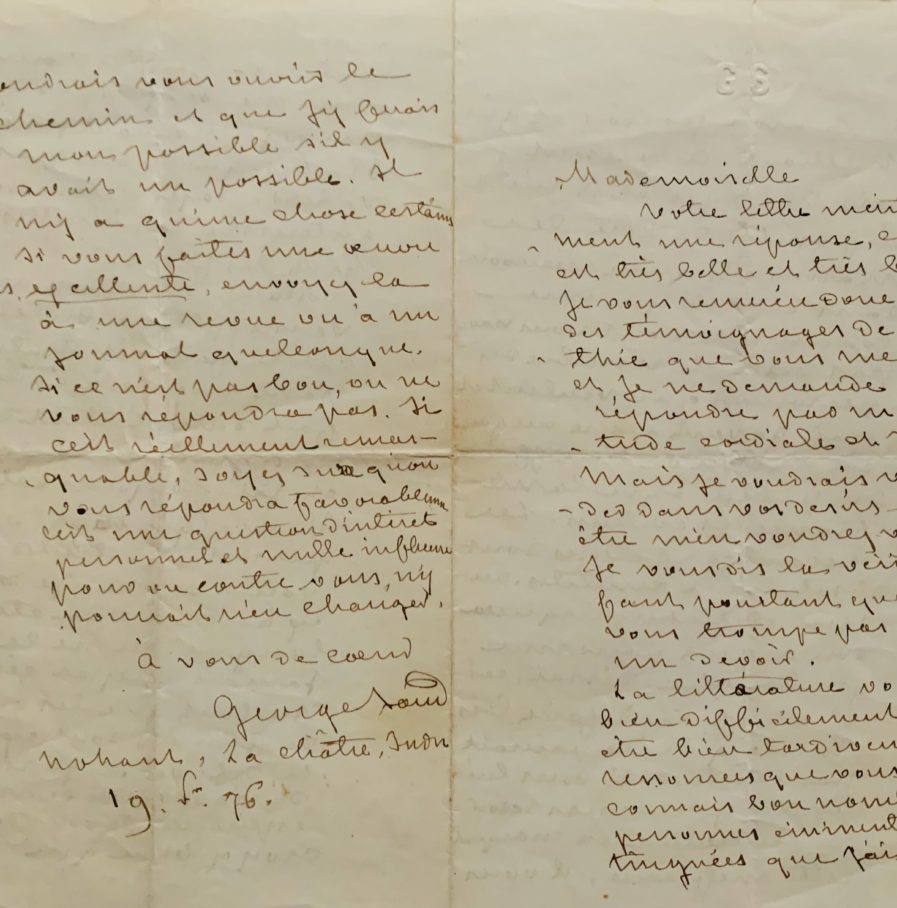 oudrais vous ouvrir le
chemin et que j'y ferais
mon possible s'il y
avait un possible. Il
n'y a qu'une chose certaine
si vous faites une œuvre
s, excellente, envoyez la
à une revue ou à un
journal quelconque.
Si ce n'est pas bon, on ne
vous répondra pas. Si
c'est réellement remar-
quable, soyez sure qu'on
vous répondra favorablement
c'est une question d'intérêt
personnel et mille influences
pour ou contre vous, n'y
pourrait rien changer.
à vous de cœur
George Sand
Nohant, La châtre, Indre
19. fr. 76.
Mademoiselle
Votre lettre
ment une réponse,
est très belle et très
Je vous remercie donc
des témoignages de
thie que vous me
et je ne demande
répondre
tude cordiale et
Mais je voudrais
dans vos desirs
être mieux
Je vous dis la
faut pourtant que
vous trompe pas
un devoir.
La littérature vo
bien difficilement
être bien tardivem
ressources que vous
connais bon nom
personnes éminent
tinguées que j'ai